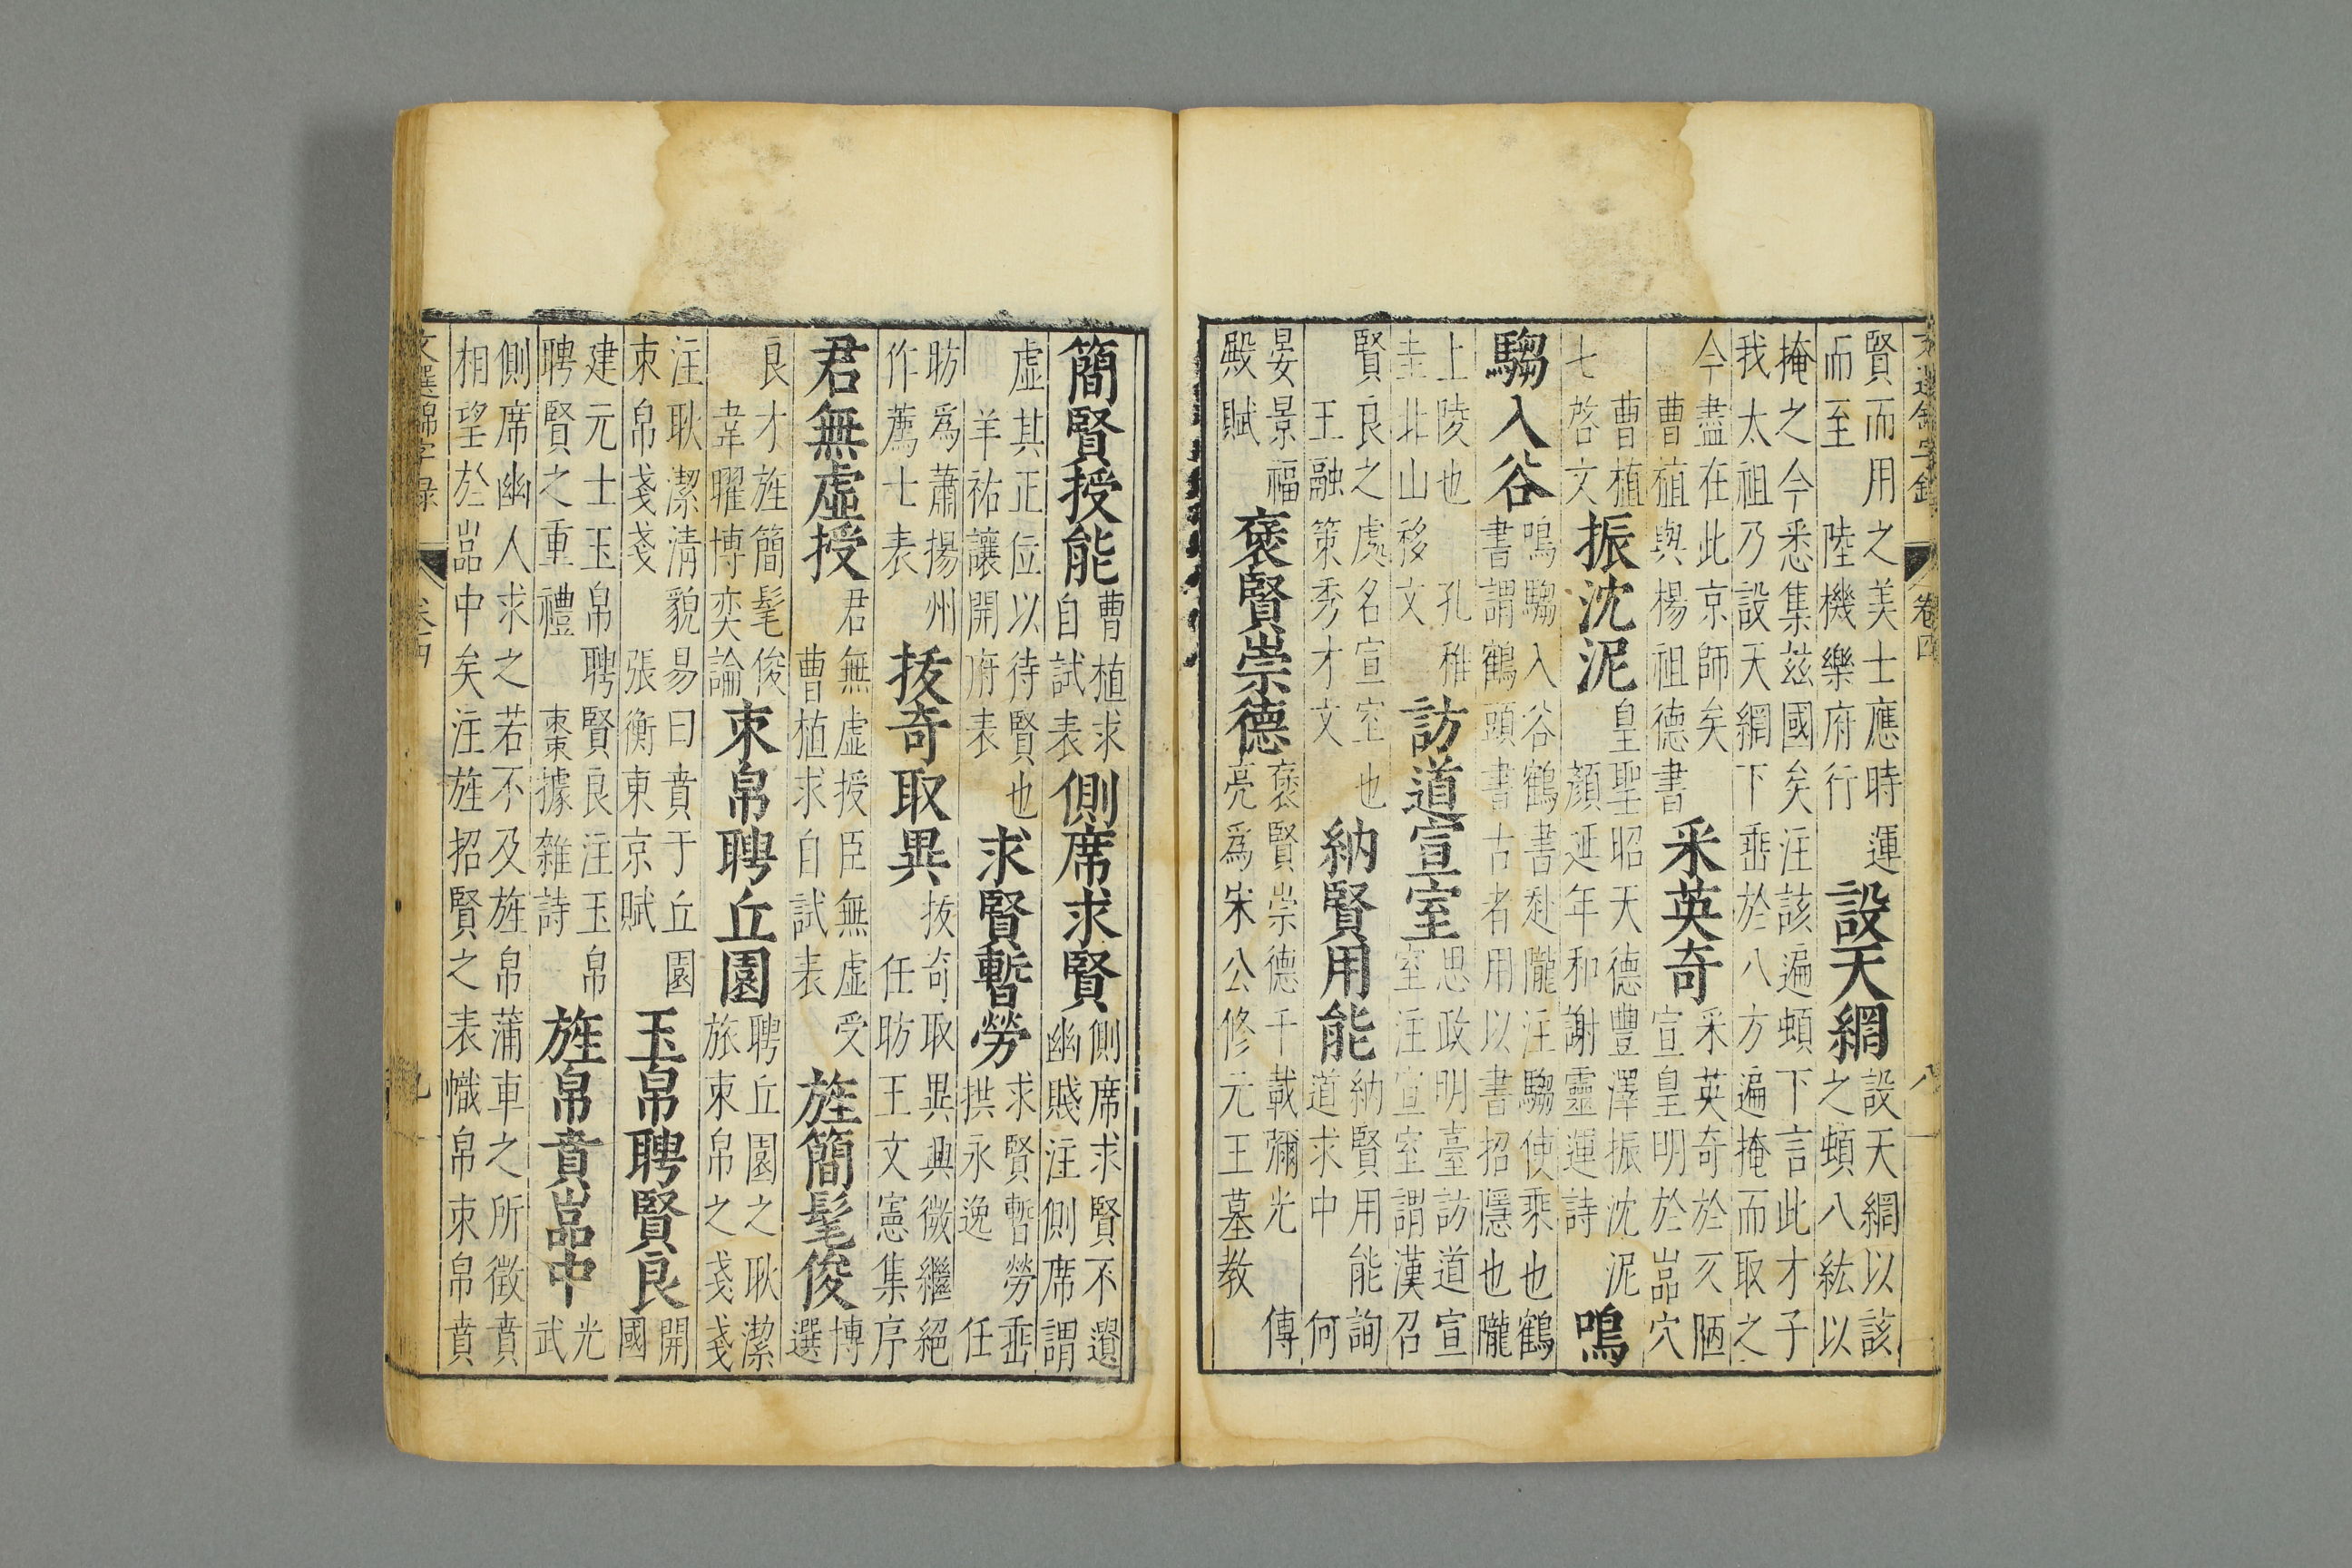 文選錦字錄 卷四 八
賢而用之美士應時運
而至 陸機樂府行
設天網
設天網以該
之頓八紘以
掩之今悉集茲國矣注該遍頓下言此才子
我太祖乃設天網下垂於八方遍掩而取之
今盡在此京師矣
曹植與楊祖德書
采英奇
采英奇於仄陋
宣皇明於嵓穴
曹植
七啓文
振沈泥
皇聖昭天德豐澤振沈泥
顏延年和謝靈運詩
鳴
騶入谷
鳴騶入谷鶴書赴隴注騶使乘也鶴
書謂鶴頭書古者用以書招隱也隴
上陵也 孔稚
圭北山移文
訪道宣室
思政明臺訪道宣
室注宣室謂漢召
賢良之處名宣室也
王融策秀才文
納賢用能
納賢用能詢
道求中 何
晏景福
殿賦
褒賢崇德
褒賢崇德千載彌光 傅
亮爲宋公修元王墓教
簡賢授能
曹植求
自試表
側席求賢
側席求賢不遺
幽賤注側席謂
虛其正位以待賢也
羊祐讓開府表
求賢暫勞
求賢暫勞垂
拱永逸 任
昉爲蕭揚州
作薦士表
拔奇取異
拔奇取異興微繼絕
任昉王文憲集序
君無虛授
君無虛授臣無虛受
曹植求自試表
旌簡髦俊
博
選
良才旌簡髦俊
韋曜博奕論
束帛聘丘園
聘丘園之耿潔
旅束帛之戔戔
注耿潔清貌易曰賁于丘園
束帛戔戔 張衡東京賦
玉帛聘賢良
開
國
建元士玉帛聘賢良注玉帛
聘賢之重禮 棗據雜詩
旌帛賁嵓中
光
武
側席幽人求之若不及旌帛蒲車之所徵賁
相望於嵓中矣注旌招賢之表幟帛束帛賁
文選錦字錄 卷四 九